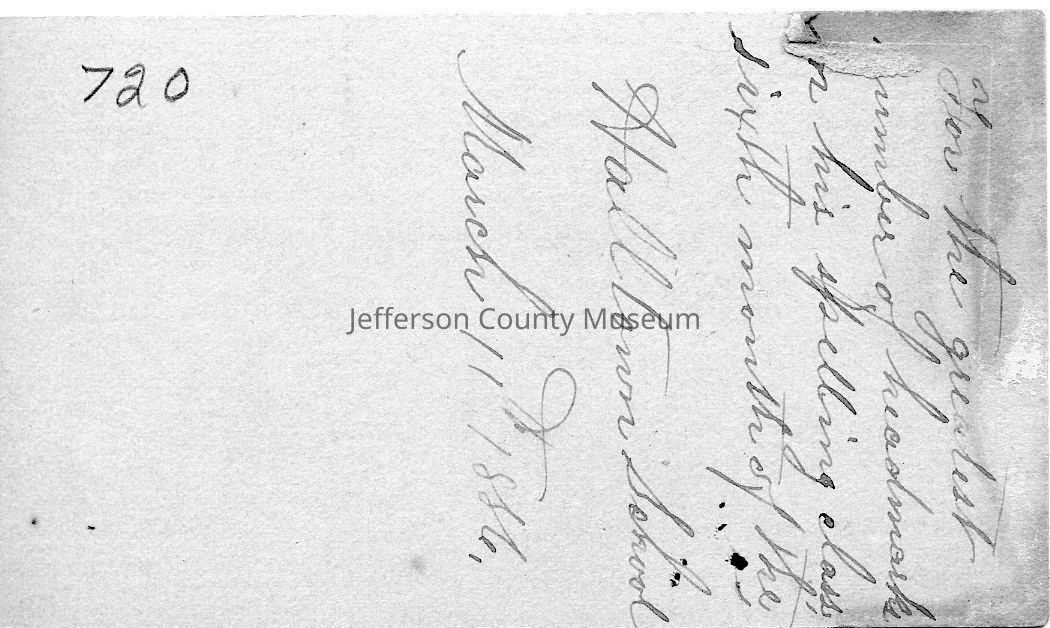 720
For the greatest
number of headmarks
in his spelling class
sixth month of the
Halltown School
March 11th 1886,
Jefferson County Museum